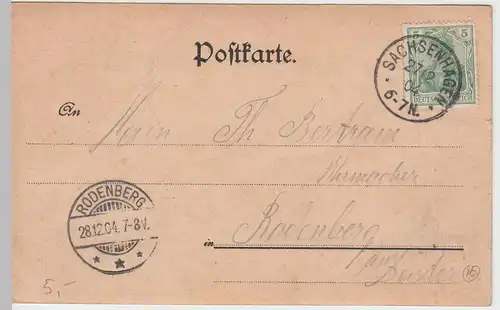 Postkarte.
5 5
DEUTSCHES REICH
SACHSENHAGEN
27 12
04
6-7N.
An
Herrn Th Bertram
Uhrmacher
RODENBERG
28.12.04. 7-8V.
in Rodenberg
5,-
16